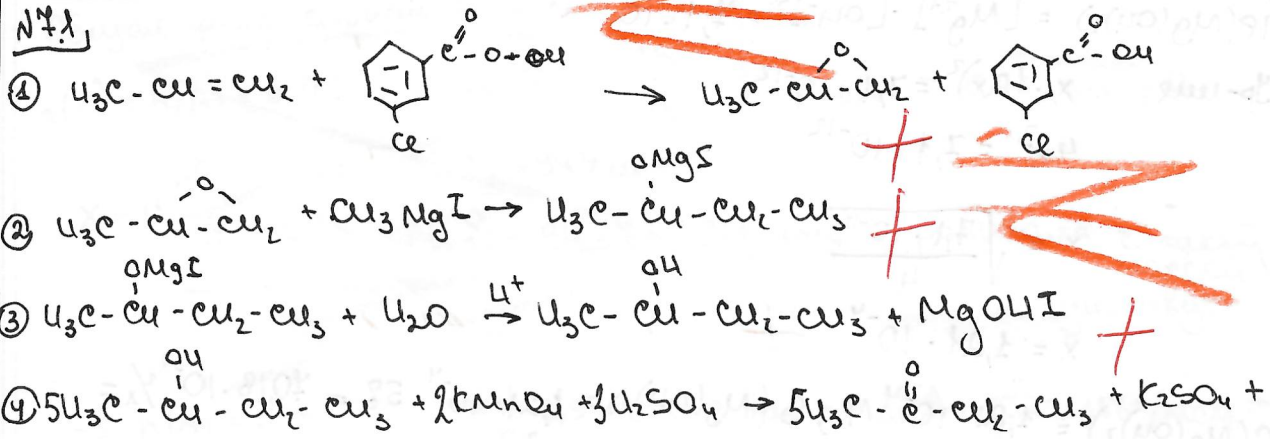 №7.1
① H₃C-CH=CH₂ + C(=O)-O-OH Cl → H₃C-CH-CH₂ (O) + C(=O)-OH Cl
② H₃C-CH-CH₂ (O) + CH₃MgI → H₃C-CH(OMgI)-CH₂-CH₃
③ H₃C-CH(OMgI)-CH₂-CH₃ + H₂O →(H⁺) H₃C-CH(OH)-CH₂-CH₃ + MgOHI
④ 5H₃C-CH(OH)-CH₂-CH₃ + 2KMnO₄ + 3H₂SO₄ → 5H₃C-C(=O)-CH₂-CH₃ + K₂SO₄ +